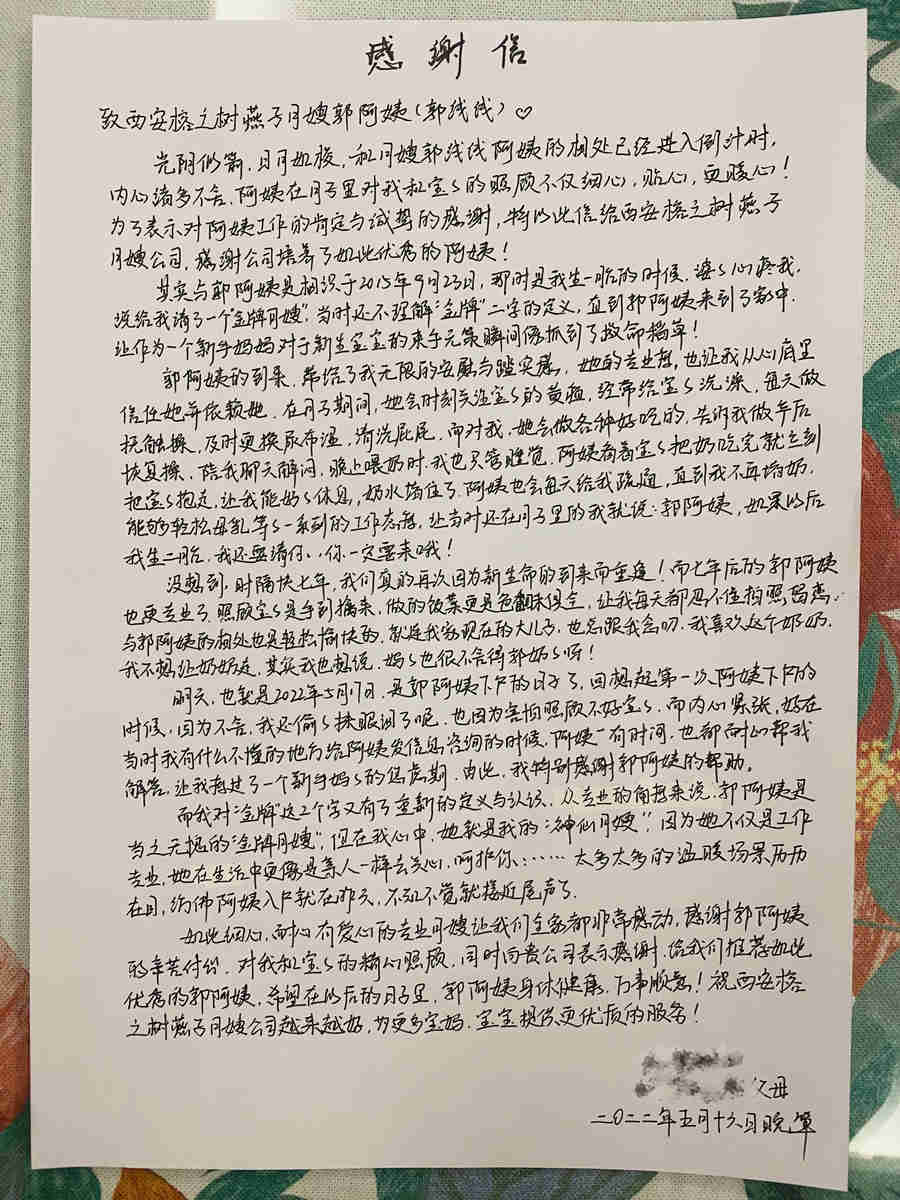 感谢信
致西安榕之树燕子月嫂郭阿姨(郭线线)♡
光阴似箭,日月如梭,和月嫂郭线线阿姨的相处已经进入倒计时,
内心诸多不舍,阿姨在月子里对我和宝宝的照顾不仅细心,贴心,更暖心!
为了表示对阿姨工作的肯定与诚挚的感谢,特以此信给西安榕之树燕子
月嫂公司,感谢公司培养了如此优秀的阿姨!
其实与郭阿姨是相识于2015年9月23日,那时是我生一胎的时候,婆婆心疼我,
说给我请了一个"金牌月嫂",当时还不理解"金牌"二字的定义,直到郭阿姨来到了家中,
让作为一个新手妈妈对于新生宝宝的束手无策瞬间像抓到了救命稻草!
郭阿姨的到来,带给了我无限的安慰与踏实感,她的专业度,也让我从心底里
信任她并依赖她,在月子期间,她会时刻关注宝宝的黄疸,经常给宝宝洗澡,每天做
抚触操,及时更换尿布湿,清洗屁屁,而对我,她会做各种好吃的,告诉我做产后
恢复操,陪我聊天解闷,晚上喂奶时,我也只管睡觉,阿姨看着宝宝把奶吃完就立刻
把宝宝抱走,让我能好好休息,奶水堵住了,阿姨也会每天给我疏通,直到我不再堵奶,
能够轻松母乳等等一系列的工作态度,让当时还在月子里的我就说:郭阿姨,如果以后
我生二胎,我还要请你,你一定要来哦!
没想到,时隔快七年,我们真的再次因为新生命的到来而重逢!而七年后的郭阿姨
也更专业了,照顾宝宝是手到擒来,做的饭菜更是色香味俱全,让我每天都忍不住拍照留念,
与郭阿姨的相处也是轻松愉快的,就连我家现在的大儿子,也总跟我念叨,我喜欢这个奶奶,
我不想让奶奶走,其实我也想说,妈妈也很不舍得郭奶奶呀!
明天,也就是2022年5月17日,是郭阿姨下户的日子了,回想起第一次阿姨下户的
时候,因为不舍,我还偷偷抹眼泪了呢,也因为害怕照顾不好宝宝,而内心紧张,好在
当时我有什么不懂的地方给阿姨发信息咨询的时候,阿姨一有时间,也都耐心帮我
解答,让我度过了一个新手妈妈的焦虑期,由此,我特别感谢郭阿姨的帮助。
而我对"金牌"这2个字又有了重新的定义与认识,从专业的角度来说,郭阿姨是
当之无愧的"金牌月嫂",但在我心中,她就是我的"神仙月嫂",因为她不仅是工作
专业,她在生活中更像是亲人一样去关心,呵护你……太多太多的温暖场景历历
在目,仿佛阿姨入户就在昨天,不知不觉就接近尾声了。
如此细心,耐心,有爱心的专业月嫂让我们全家都非常感动,感谢郭阿姨
的辛苦付出,对我和宝宝的精心照顾,同时向贵公司表示感谢,给我们推荐如此
优秀的郭阿姨,希望在以后的日子里,郭阿姨身体健康,万事顺意!祝西安榕
之树燕子月嫂公司越来越好,为更多宝妈,宝宝提供更优质的服务!
父母
二〇二二年五月十六日晚,笔